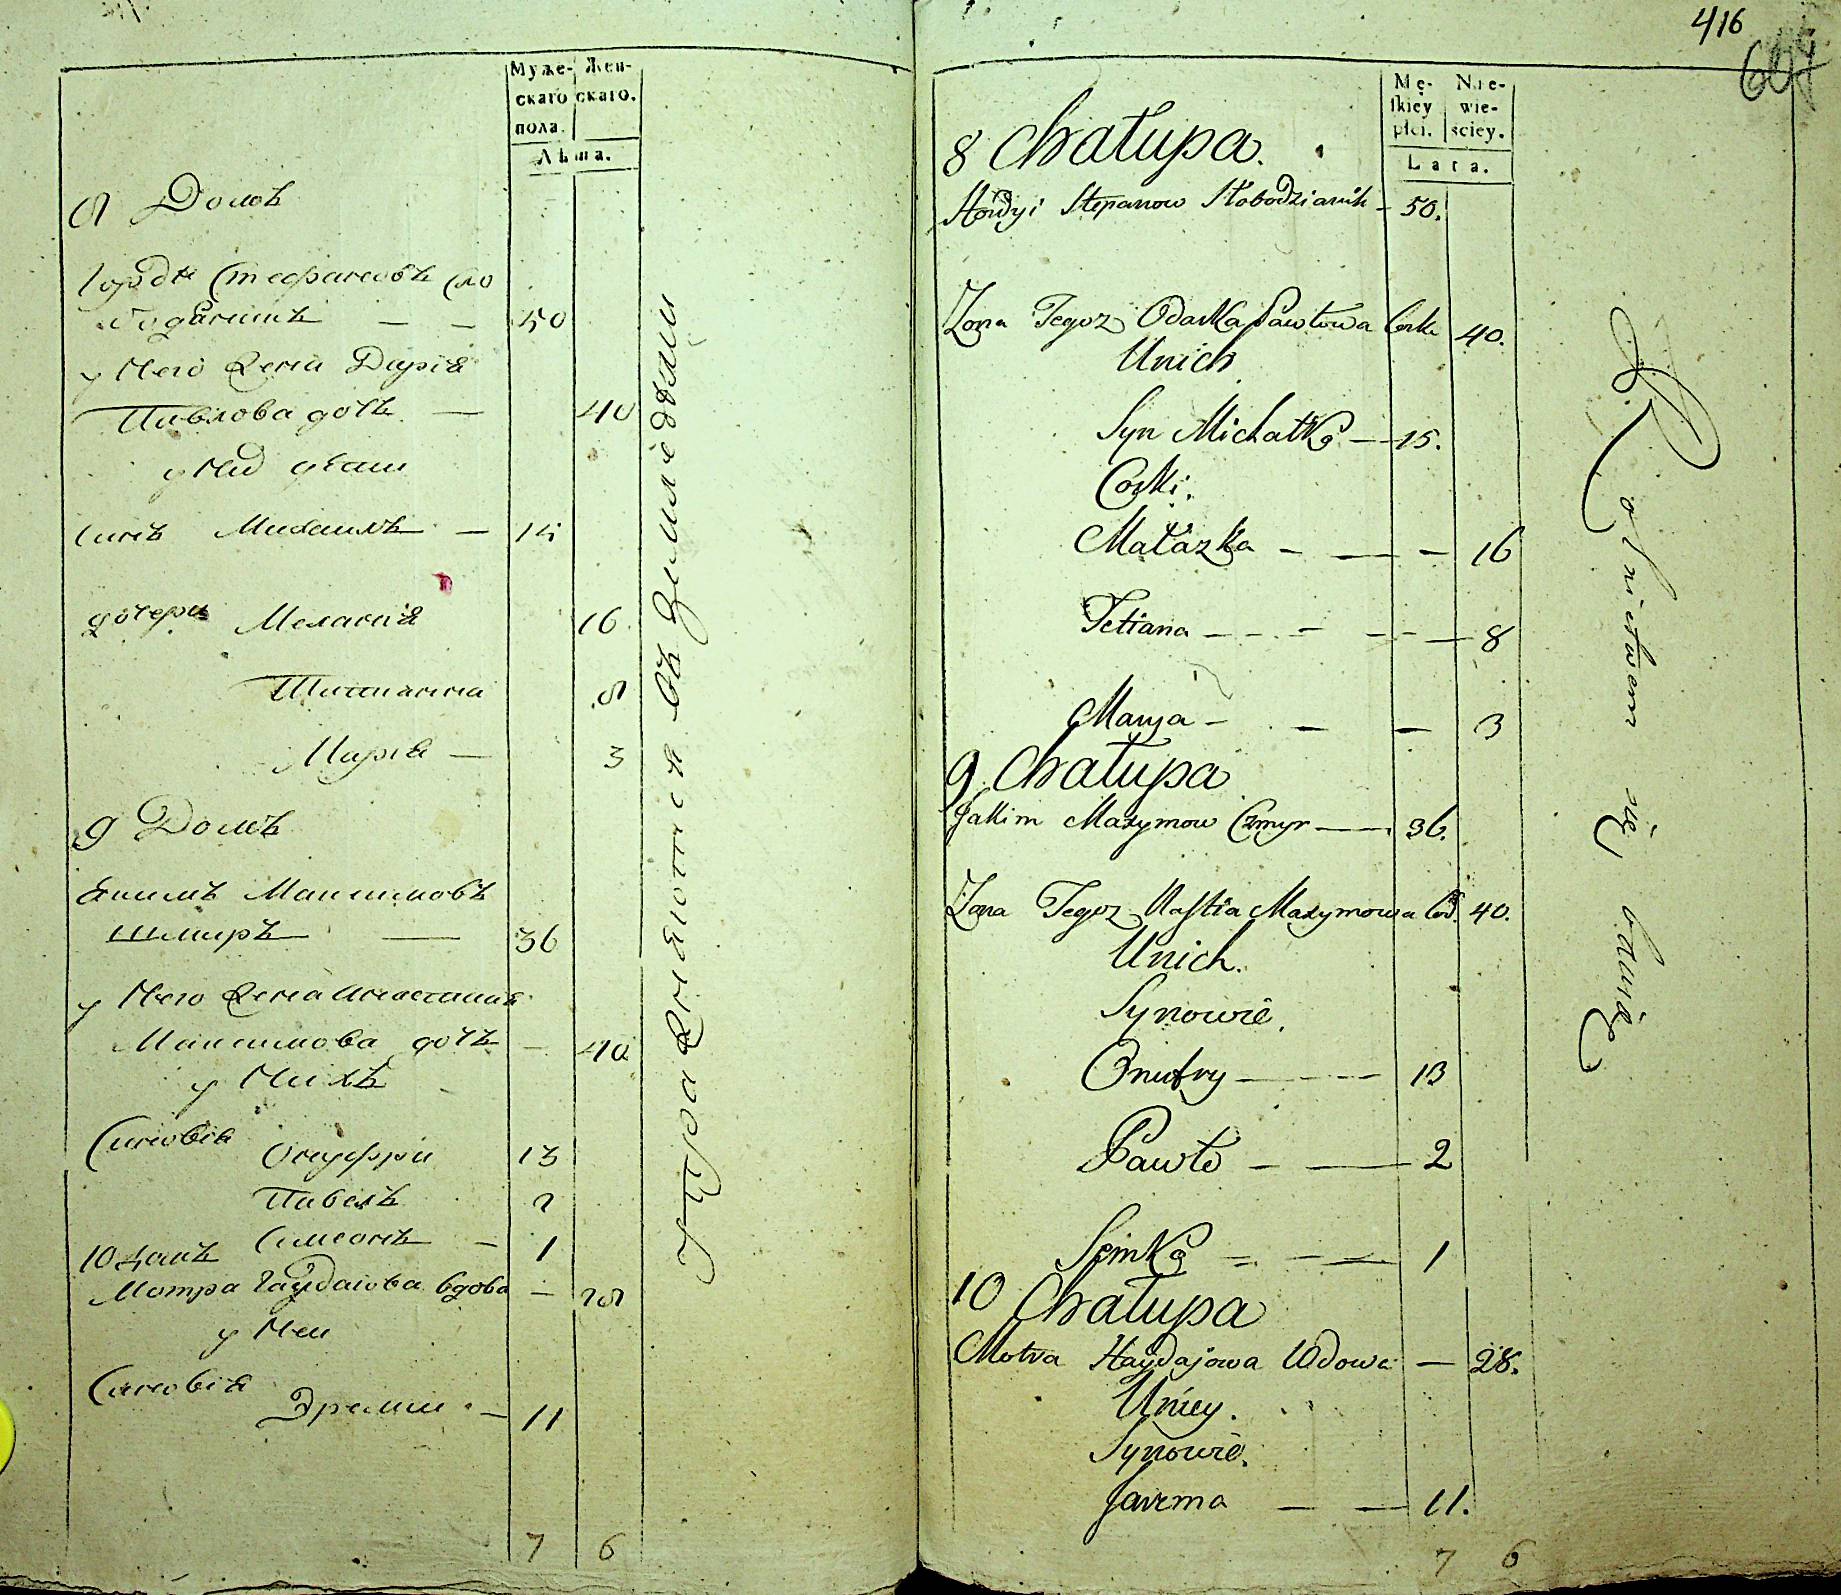 Муже- Жен-
скаго скаго.
пола.
Лѣта.
8 Домъ
Горди Стефановъ Сло
бодяникъ — — 50
у Него Жена Дария
Павлова дочь — 40
у Них дѣти
Синъ Михаилъ — 15
дочери Мелания 16
Татианна 8
Мария — 3
9 Домъ
Якимъ Максимовъ
Шмиръ — 36
у Него Жена Анастасия
Максимова дочь — 40
у Нихъ
Синовья Онуфри 13
Павелъ 2
Симеонъ — 1
10 Домъ
Мотра Гайдаиова вдова — 28
у Неи
Синовья Эреми — 11
7 6
упражняются въ Земледѣлии
416
607
Mę- Nie-
skiey wie-
płci. sciey.
Lata.
8 Chałupa.
Hordyi Stepanow Słobodzianik — 50.
Zona Tegoz Odarka Pawłowa Corka 40.
U nich
Syn Michałko — 15.
Corki.
Małazka — — — 16
Tetiana — — — 8
Marya — — — 3
9. Chałupa
Jakim Maxymow Czmyr — 36.
Zona Tegoz Nastia Maxymowa Cor. 40.
U nich.
Synowie.
Onufry — 13
Pawło — — 2
Semko — — 1
10 Chałupa
Motra Haydajowa Wdowa — 28.
U niey.
Synowie.
Jarema — — 11.
7 6
Rolnictwem się bawią